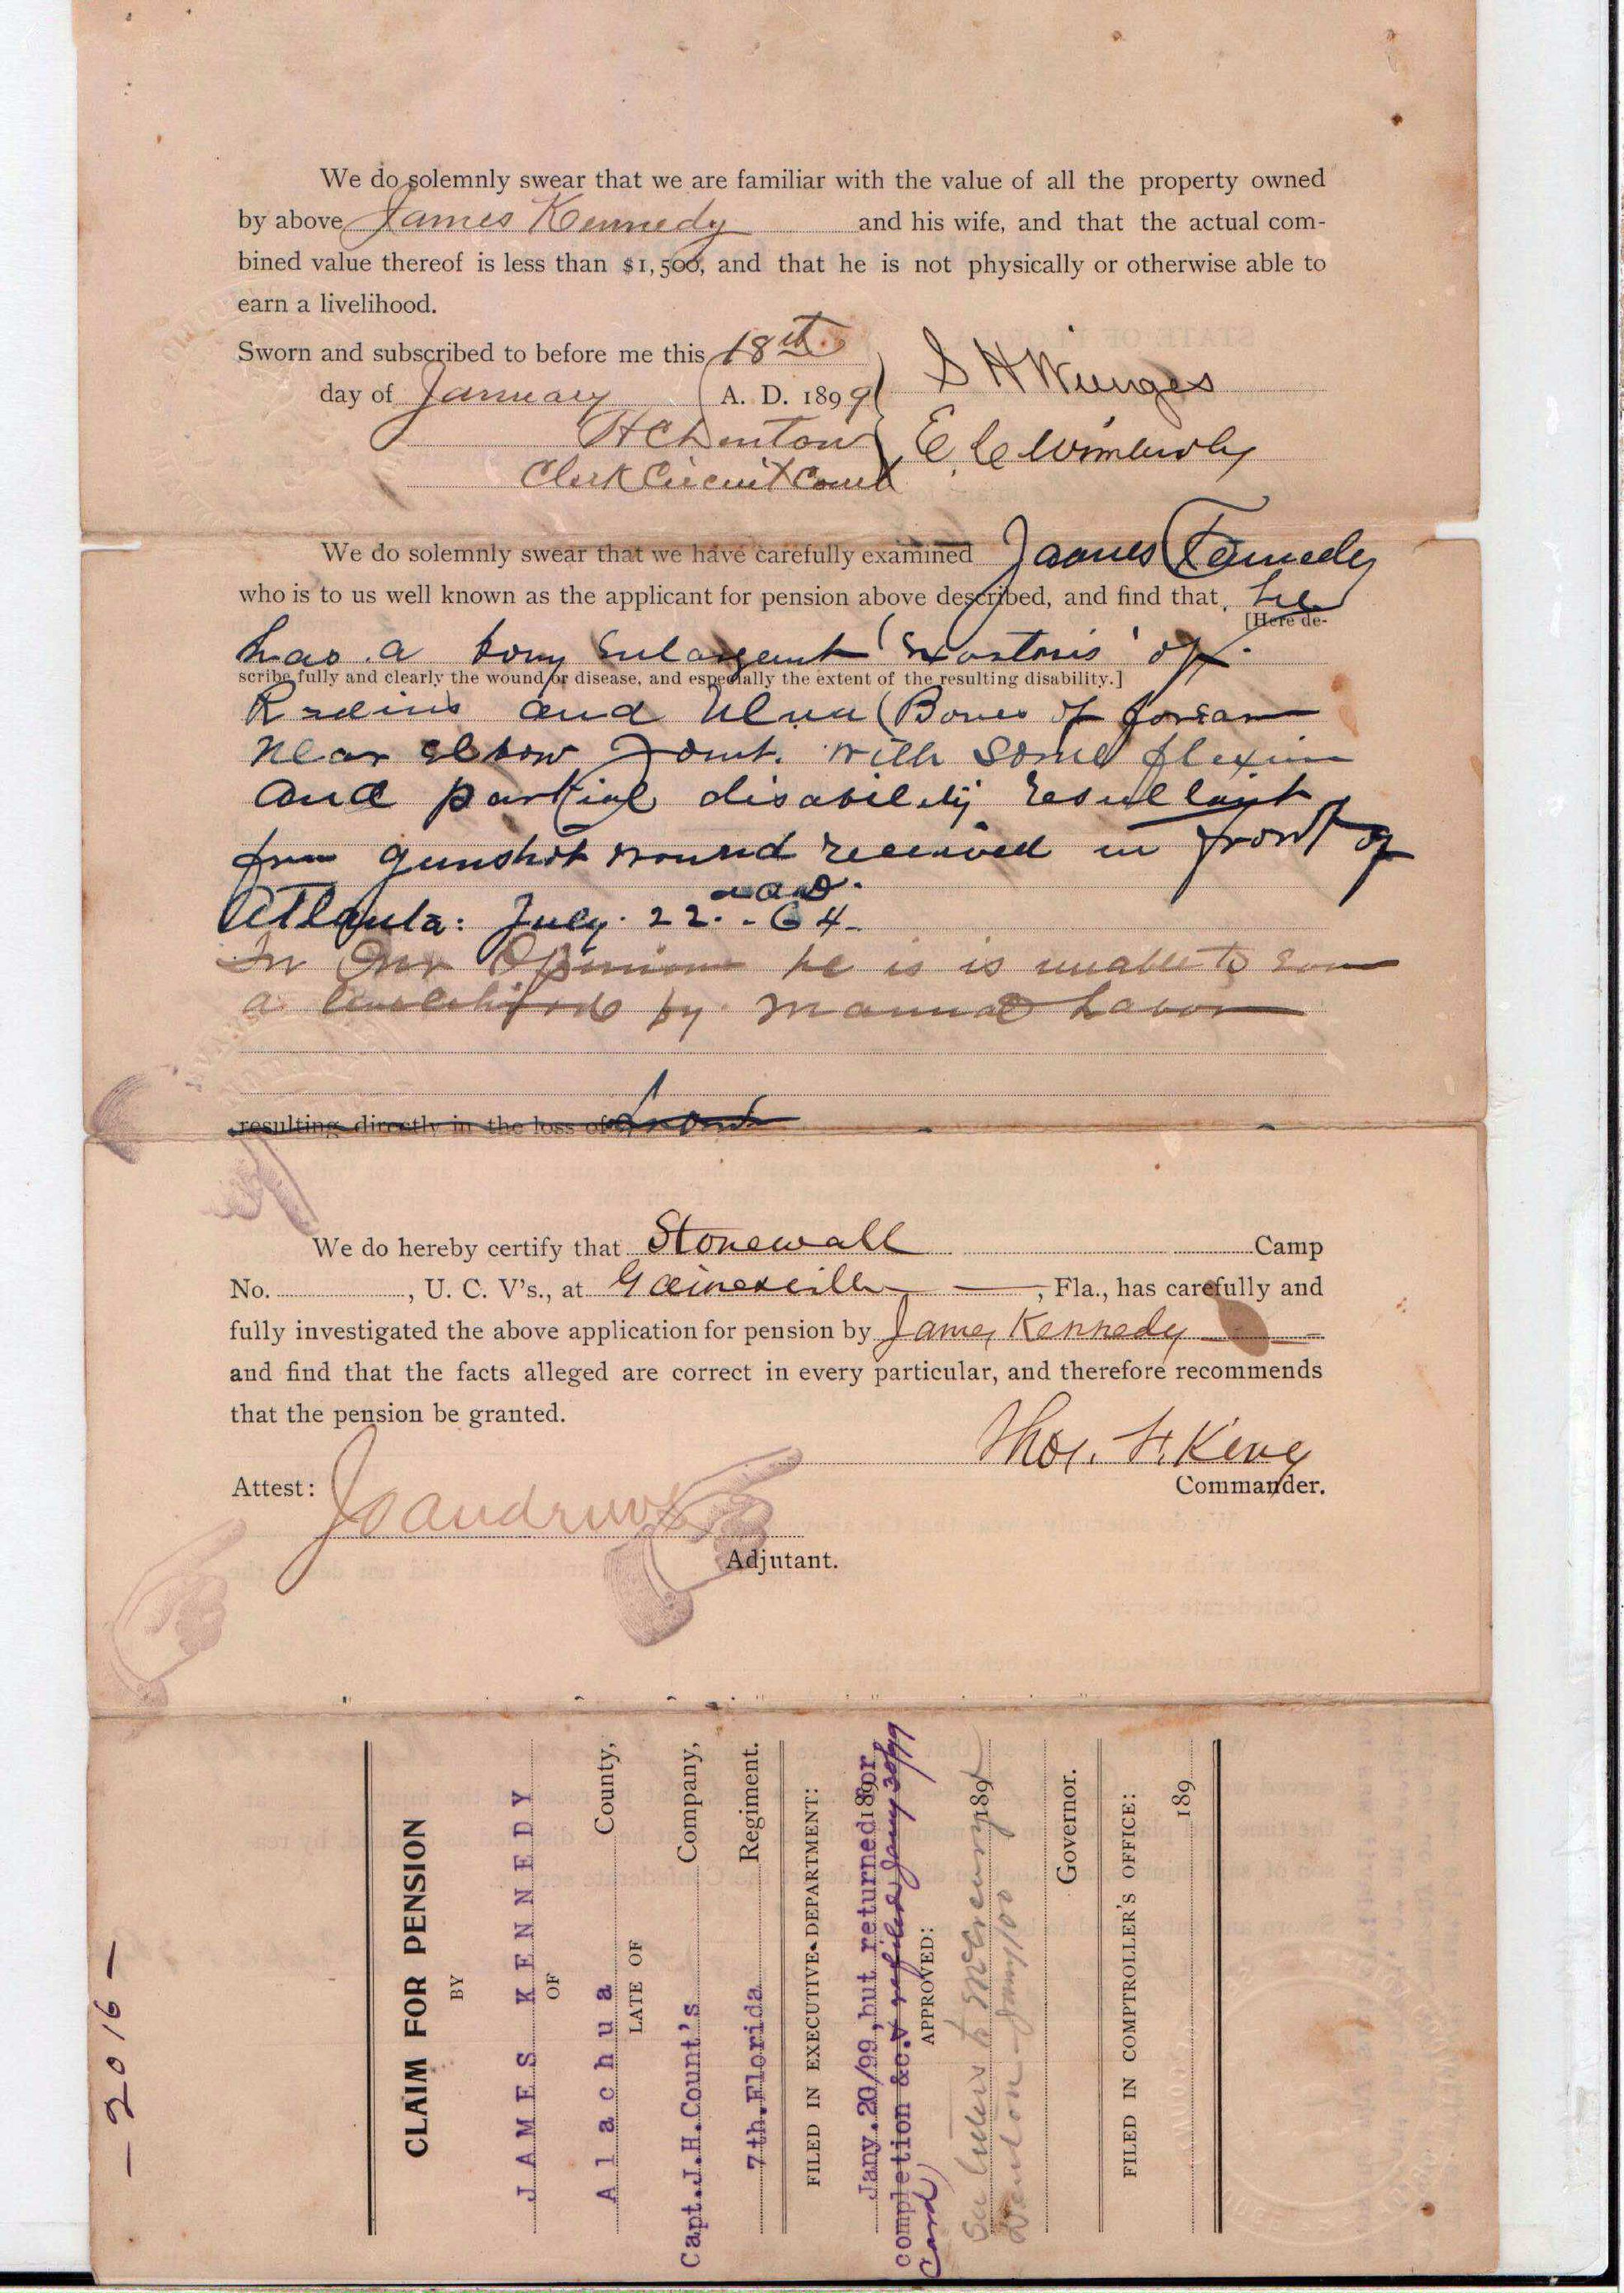 We do solemnly swear that we are familiar with the value of all the property owned
by above James Kennedy and his wife, and that the actual com-
bined value thereof is less than $1,500, and that he is not physically or otherwise able to
earn a livelihood.
Sworn and subscribed to before me this 18th
day of January A. D. 1899
S H Wienges
H C Denton
E. C Wimberly
Clerk Circuit Court
We do solemnly swear that we have carefully examined James Kennedy
who is to us well known as the applicant for pension above described, and find that he
[Here de-
has a bony enlargemt of
scribe fully and clearly the wound or disease, and especially the extent of the resulting disability.]
Radius and Ulna (Bones of forearm
near elbow Joint. with some flexion
and partial disability resultant
from gunshot wound received in front of
Atlanta: July. 22. - 64-
In Our Opinion he is is unable to earn
a livelihood by manual Labor
resulting directly in the loss of
We do hereby certify that Stonewall Camp
No. , U. C. V's., at Gainesville , Fla., has carefully and
fully investigated the above application for pension by James Kennedy
and find that the facts alleged are correct in every particular, and therefore recommends
that the pension be granted.
Thos. F. King
Commander.
Attest:
Adjutant.
- 2016 -
CLAIM FOR PENSION
BY
JAMES KENNEDY
OF
Alachua County,
LATE OF
Capt.J.H.Count's Company,
7th.Florida Regiment.
FILED IN EXECUTIVE DEPARTMENT:
Jany.20/99,but returned for 189
completion &c. & refiled Jany 30/99
APPROVED:
See letters to McCreary 189
Denton Jany/00
Governor.
FILED IN COMPTROLLER'S OFFICE:
189